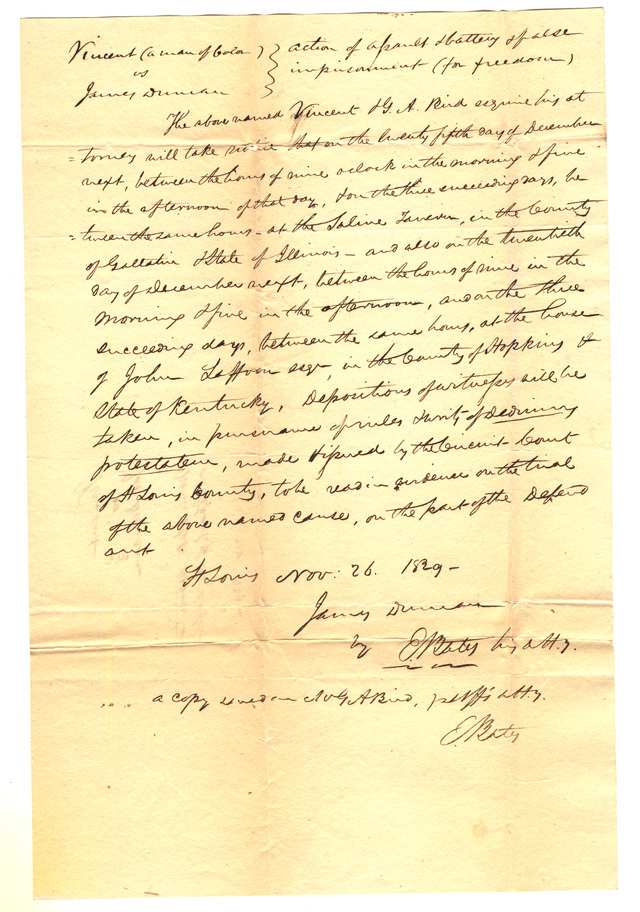 Vincent (a man of Color) } action of assault & battery & false
vs } imprisonment (for freedom)
James Duncan }
The above named Vincent & G. A. Bird esquire his at
=torney will take notice that on the twenty fifth day of December
next, between the hours of nine oclock in the morning & five
in the afternoon of that day, & on the three succeeding days, be
=tween the same hours - at the Saline Tavern, in the County
of Gallatin & State of Illinois - and also on the twentieth
day of December next, between the hours of nine in the
morning & five in the afternoon, and on the three
succeeding days, between the same hours, at the house
of John Laffoon esqr, in the County of Hopkins &
State of Kentucky, Depositions of witnesses will be
taken, in pursuance of rules & writs of Dedimus
protestatem, made & issued by the Circuit Court
of St Louis County, to be read in evidence on the trial
of the above named cause, on the part of the Defend
ant.
St Louis Nov: 26. 1829-
James Duncan
by E. Bates his atty.
a copy served on Mr G A Bird, pltff's atty.
E. Bates